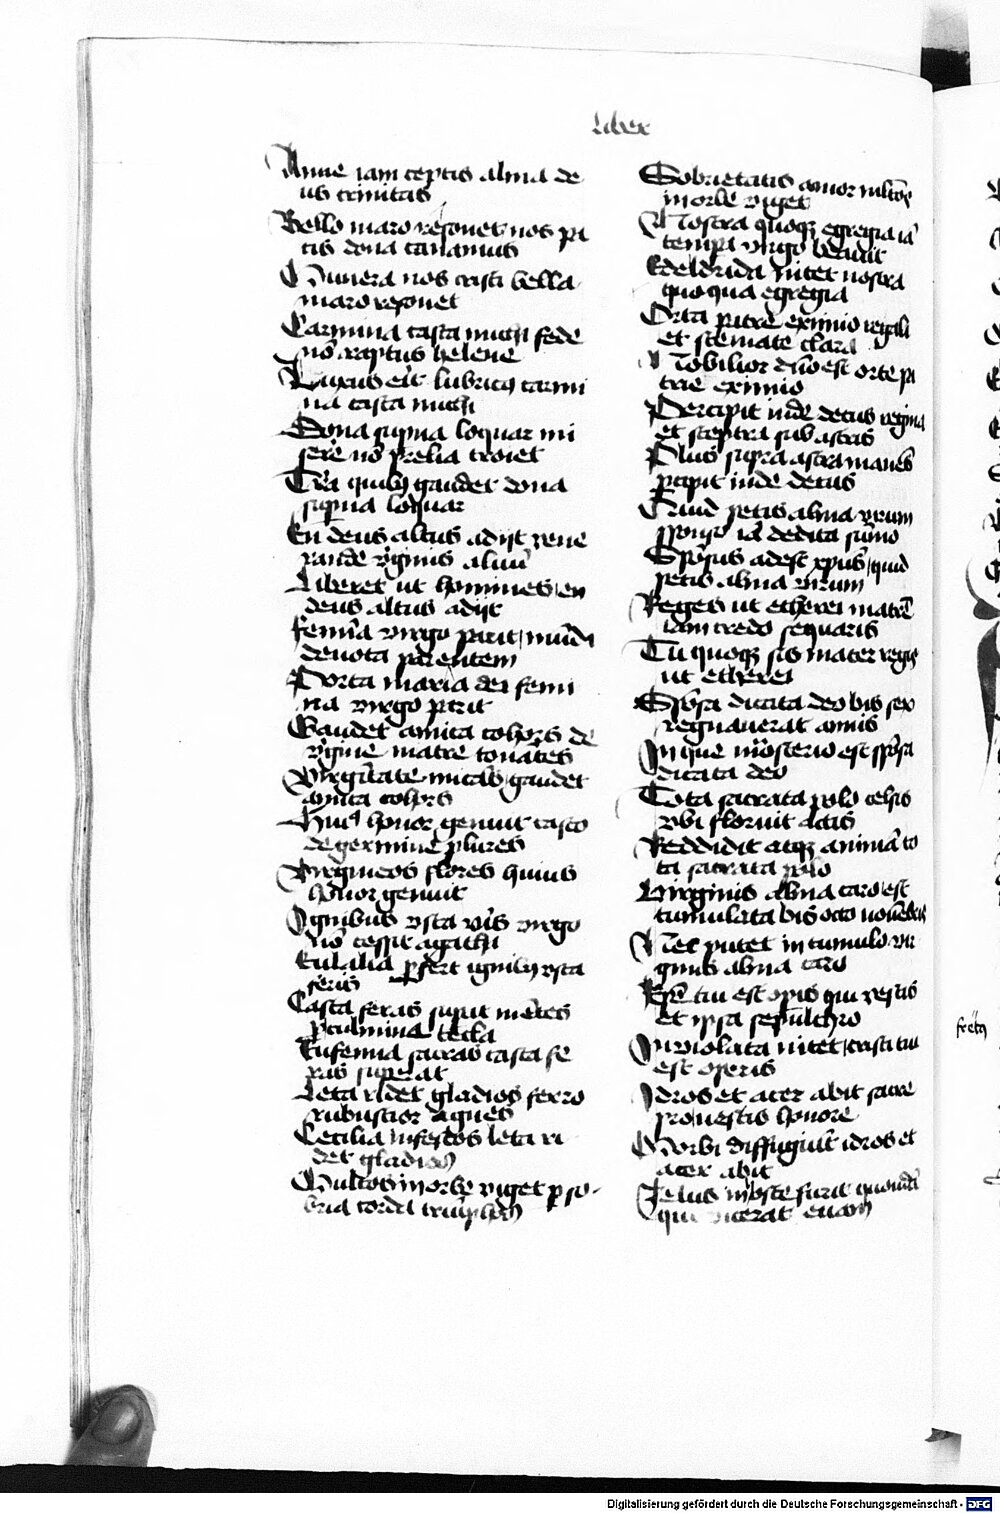 Liber
Anue iam ceptis alma de
us trinitas
Bello maro resonet nos pa
cis dona canamus
Munera nos cristi bella
maro resonet
Carmina casta michi fede
nō raptus helene
Luxus erit lubricꝫ carmi
na casta michi
Dona suꝑna loquar mi
sere nō prelia troiet
Tr̄a quibꝫ gaudet dona
suꝑna loquar
En deus altus adijt vene
rande v̓ginis aluū
Liberet ut homines / en
deus altus adijt
Femīa virgo parit / mūdi
deuota parentem
Porta maria dei femi
na virgo parit
Gaudet amica cohors de
v̓gine matre tonātes
Virgītate micās / gaudet
amica cohors
Huiꝰ honor genuit casto
de germine plures
Virgineos flores huius
honor genuit
Ignibus vsta v̓is virgo
nō cessit agathi
Eulalia ꝑfert ignibꝫ vsta
feris
Casta feras suꝑat mētes
ꝑ culmina tecla
Eufemia sacras casta fe
ras superat
Leta ridet gladios ferro
robustior agnes
Cecilia infestos leta ri
det gladios
Multos in orbe viget ꝑ so
bria corda triūphꝫ
Sobrietatis amor mltōs
in orbe viget
Nostra quoqꝫ egregia iā
tempa virgo beauit
Edeldrida nitet nostra
quoqua egregia
Orta patre eximio regali
et stemate clara
Nobilior dn̄o est orte pa
tre eximio
Percipit inde decus regina
et sceptra sub astris
Plus supra astra manēs
ꝑcipit inde decus
Quid petis alma virum
sponso iā dedita sūmo
Spōsus adest xpūs / quid
petis alma virum
Reges ut etherei matrē
iam credo sequaris
Tu quoqꝫ sis mater regis
ut etherei
Spōsa dicata deo bis sex
regnauerat annis
Inque mōsterio est spōsa
dicata deo
Tota sacrata polo celsis
vbi floruit actis
Reddidit atqꝫ animā to
ta sacrata polo
Virginis alma caro est
tumulata bis octo nouēbris
Nec putet in tumulo vir
ginis alma caro
Xpē tui est opis qui vestis
et ipsa sepulchro
Inuiolata nitet / cristi tui
est operis
Idros et ater abit sacre
pro vestis honore
Morbi diffugiūt idros et
ater abit
Zelus in hoste furit quondā
qui vicerat euam